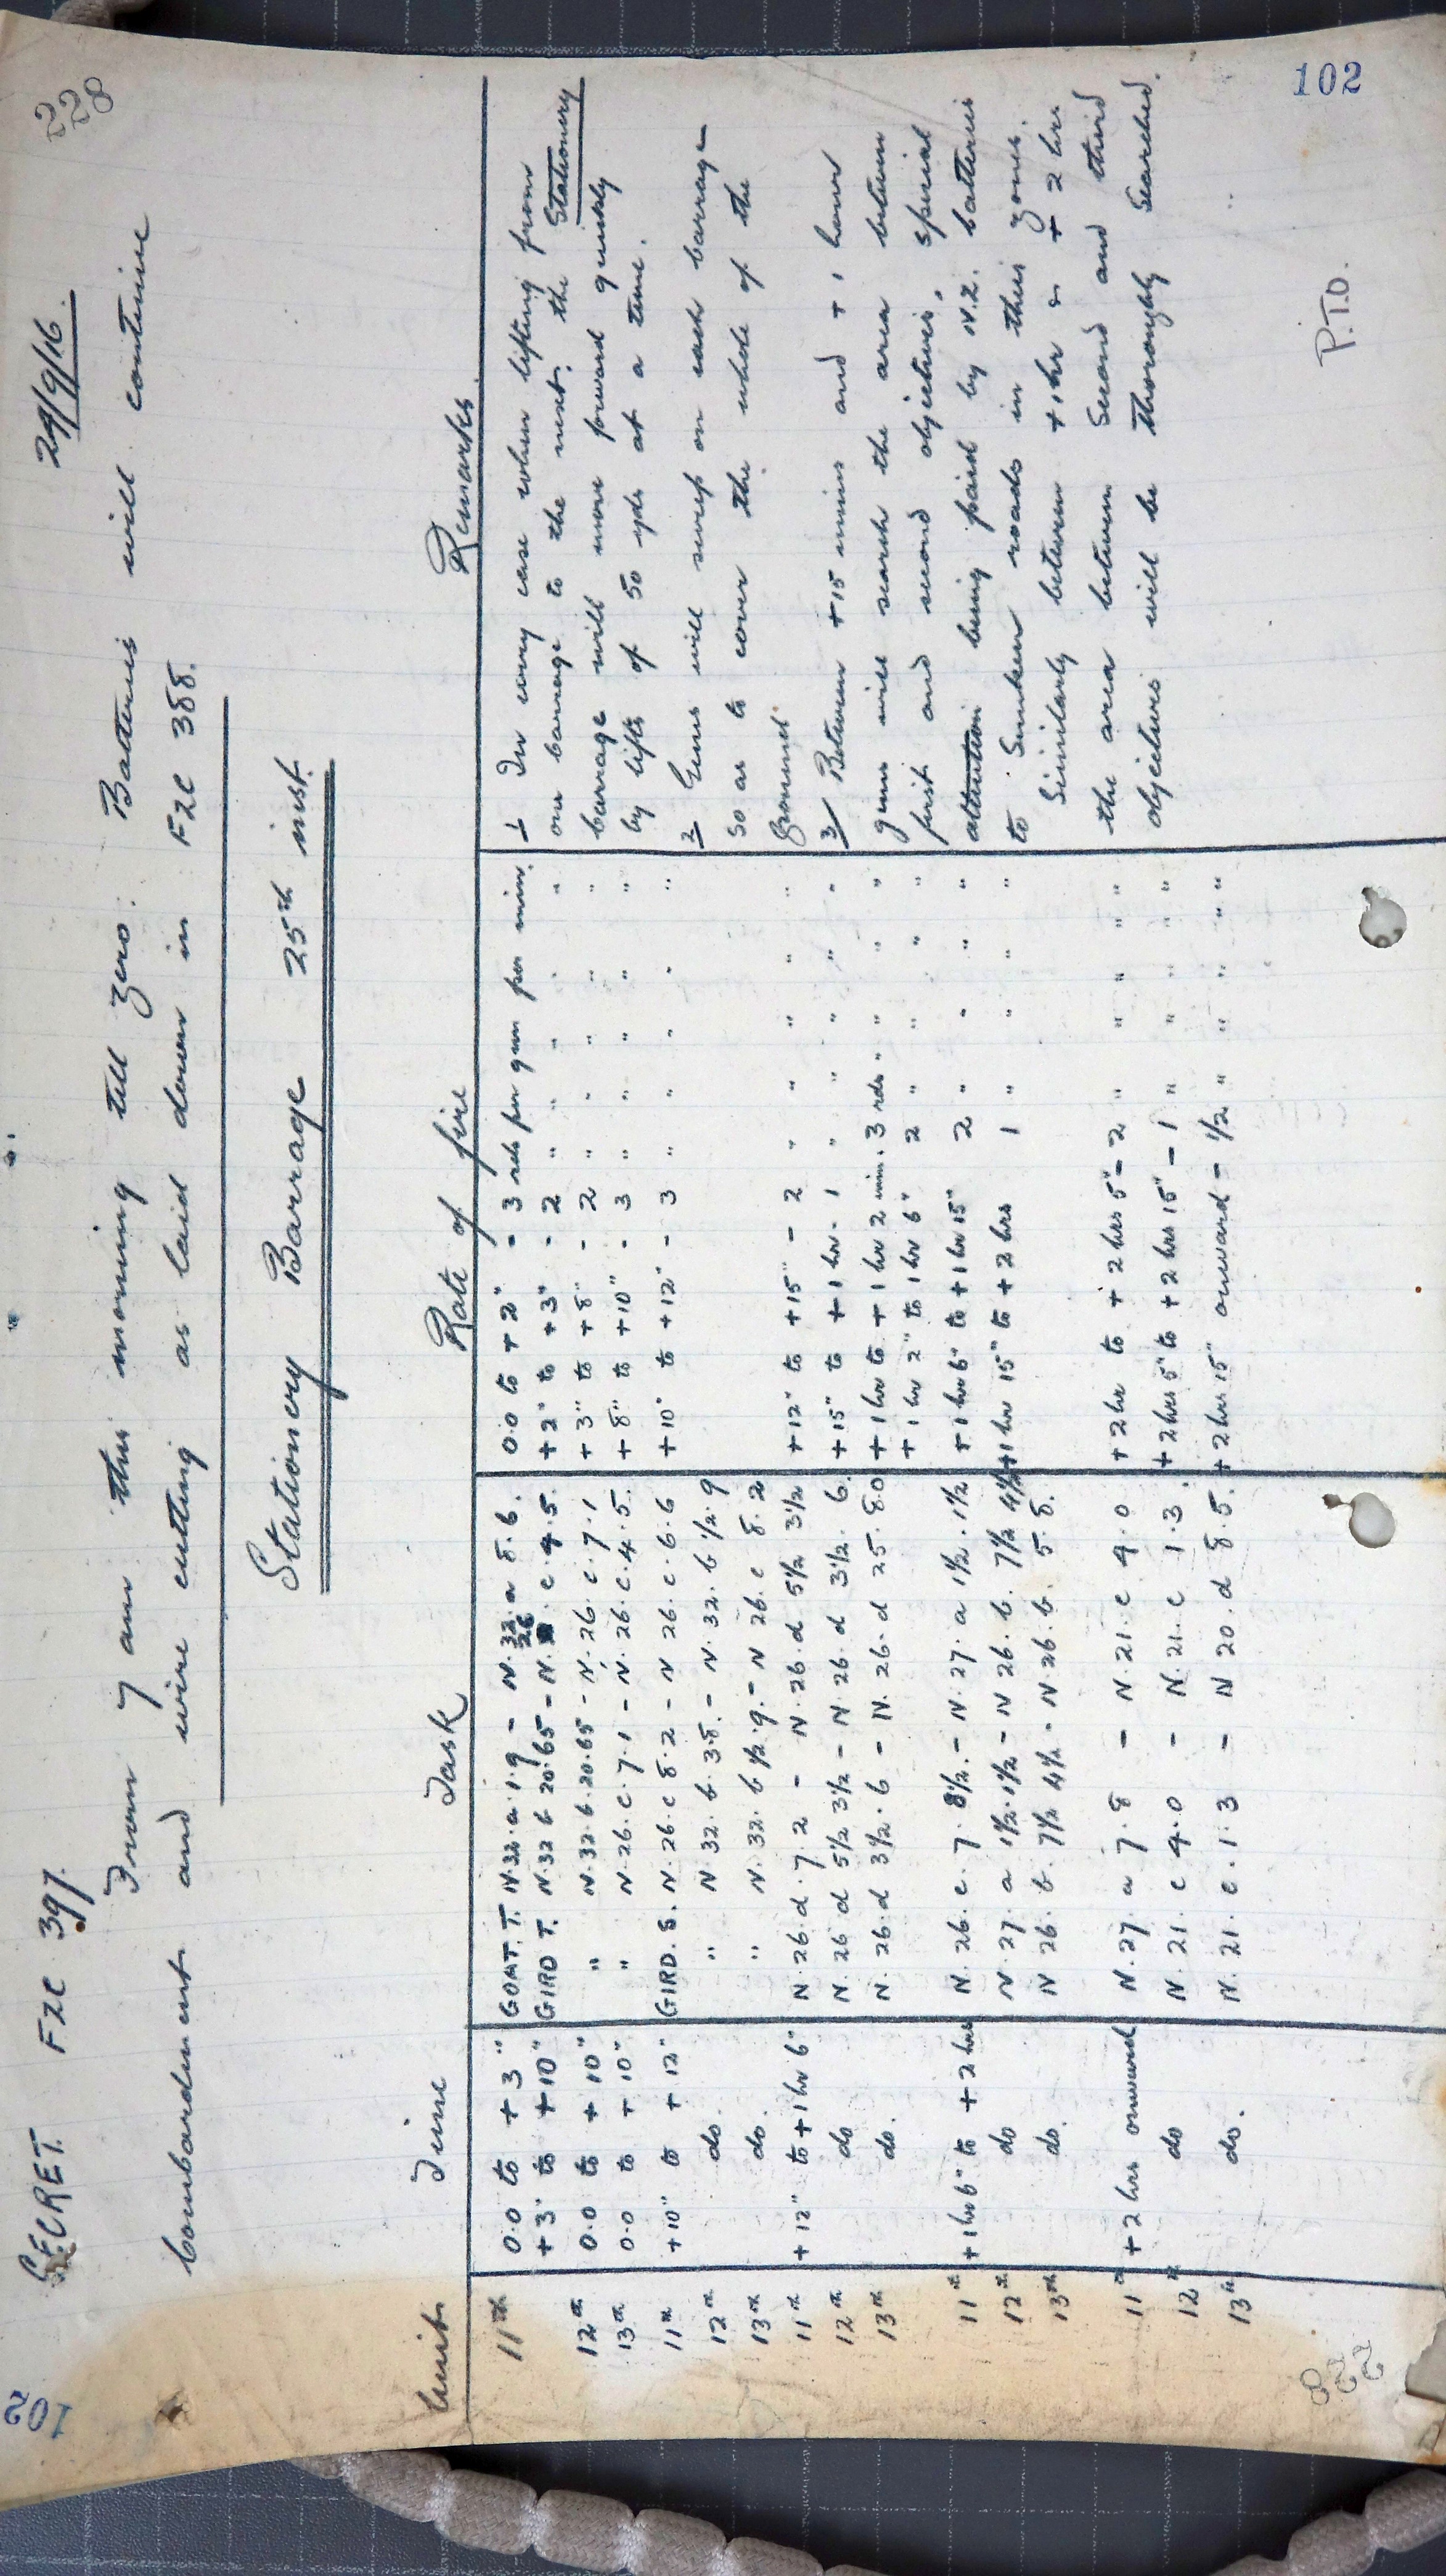 228
102
SECRET. FZC 397. 24/9/16.
From 7 am this morning till zero. Batteries will continue
bombardment and wire cutting as laid down in FZC 388.
Stationery Barrage 25th inst.
Units Time Task Rate of fire Remarks.
11th 0.0 to + 3" GOAT. T. N.32.a.1.9 - N.32.a 8.6. 0.0 to + 2" - 3 rds per gun per min.
+3" to +10" GIRD T. N.32 b 20.65 - N.26.c.4.5. +2" to +3" - 2 " " " " "
12th 0.0 to + 10" " N.32.b.20.65 - N.26.c.7.1 +3" to +8" - 2 " " " " "
13th 0.0 to + 10" " N.26.c.7.1 - N.26.c.4.5. +8" to +10" - 3 " " " " "
11th +10" to + 12" GIRD. S. N.26.c 8.2 - N 26.c.6.6 +10" to +12" - 3 " " " " "
12th do. " N 32.b.3.8. - N.32.b ½.9
13th do. " N.32.b ½.9. - N 26.c 8.2
11th +12" to +1 hr 6" N.26.d.7 2 - N.26.d 5½ 3½ +12" to +15" - 2 " " " " "
12th do N.26 d 5½ 3½ - N.26 d 3½.6. +15" to +1 hr. 1 " " " " "
13th do. N.26.d 3½.6 - N.26.d 25.8.0 +1 hr to +1 hr 2 min. 3 rds. " " " "
+1 hr 2" to 1 hr 6" 2 " " " "
11th +1 hr 6" to +2 hrs N.26.c.7.8½. - N.27.a 1½.1½ +1 hr 6" to +1 hr 15" 2 " " " "
12th do N.27.a 1½.1½ - N 26.b.7½ 4½ +1 hr 15" to +2 hrs 1 " " " "
13th do. N 26.b 7½ 4½ - N 26.b. 5.8.
11th +2 hrs onward N.27.a 7.8 - N.21.c 9.0 +2 hr to + 2 hrs 5" - 2 " " " "
12th do N.21.c 4.0 - N.21.c 1.3. +2 hrs 5" to +2 hrs 15" - 1 " " " "
13th do. N.21.c.1.3 - N 20.d 8.5. +2 hrs 15" onward - ½ " " " "
1 In every case when lifting from
one barrage to the next, the Stationery
barrage will move forward quickly
by lifts of 50 yds at a time.
2 Guns will sweep on each barrage
so as to cover the whole of the
ground.
3 Between +15 mins and +1 hour
guns will search the area between
first and second objectives, special
attention being paid by N.Z. batteries
to Sunken roads in their zones.
Similarly between +1hr & +2 hrs
the area between second and third
objectives will be thoroughly searched.
P.T.O.
102
228